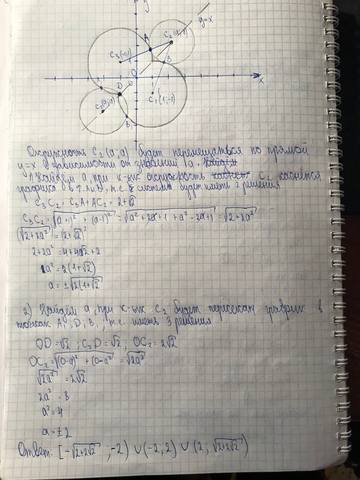 y
y=x
C₂(a,a)
A
C₃(-1,1)
B
x
D
C₁(1,-1)
B₁
Окружность C₂(a;a) будет перемещаться по прямой
y=x в зависимости от значений a.
1) Найдём a, при к-ых окружность C₂ касается
графика в т. A и D, т.е. система будет иметь 2 решения
C₃C₂ = C₃A + AC₂ = 2+√2
C₃C₂ = √(a+1)² + (a-1)² = √a²+2a+1+a²-2a+1 = √2+2a²
(√2+2a²)² = (2+√2)²
2+2a² = 4+4√2+2
a² = 2(1+√2)
a = ±√2(1+√2)
2) Найдём a, при к-ых C₂ будет пересекать график в
точках A, D, B, т.е. иметь 3 решения
OD=√2; C₂D=√2; OC₂=2√2
OC₂=√(0-a)²+(0-a)² = √2a²
√2a² = 2√2
2a² = 8
a² = 4
a = ±2
Ответ: [-√2+2√2; -2) ∪ (-2; 2) ∪ (2; √2+2√2)